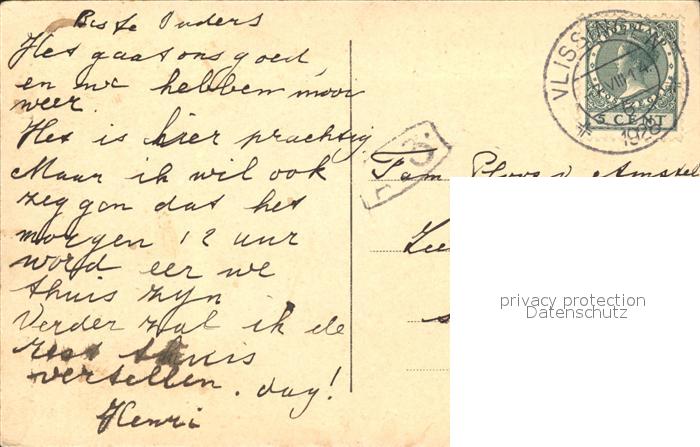 Beste Ouders
Het gaat ons goed,
en we hebben mooi
weer.
Het is hier prachtig.
Maar ik wil ook
zeggen dat het
morgen 12 uur
word eer we
thuis zijn
Verder zal ik de
rest thuis
vertellen. dag!
Henri
VLISSINGEN
1928
NEDERLAND
5 CENT
3.
Fam Ploos v. Amstel
privacy protection
Datenschutz